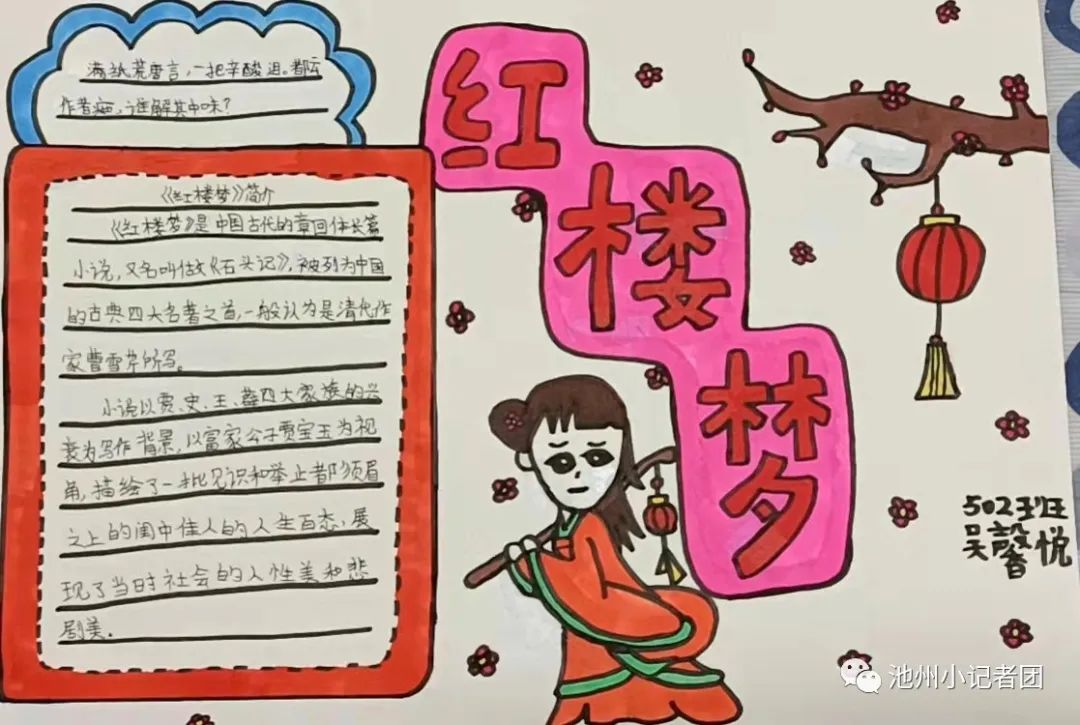 满纸荒唐言,一把辛酸泪。都云
作者痴,谁解其中味?
红楼梦
《红楼梦》简介
《红楼梦》是中国古代的章回体长篇
小说,又名叫做《石头记》,被列为中国
的古典四大名著之首,一般认为是清代作
家曹雪芹所写。
小说以贾、史、王、薛四大家族的兴
衰为写作背景,以富家公子贾宝玉为视
角,描绘了一批见识和举止都须眉
之上的闺中佳人的人生百态,展
现了当时社会的人性美和悲
剧美。
502班
吴馨悦
池州小记者团